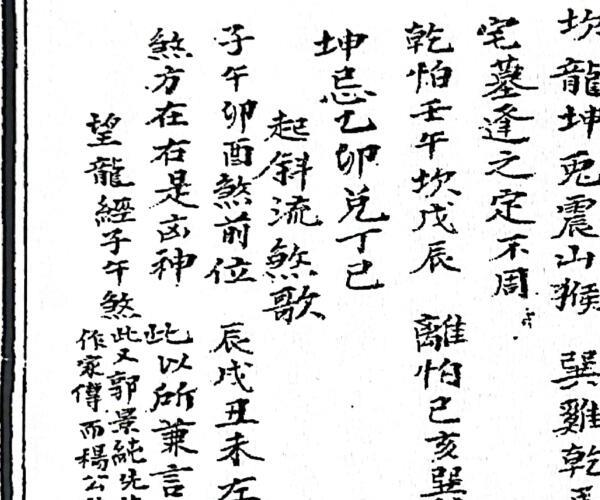 坎龍坤兎震山猴 巽雞乾
宅墓逢之定不周
乾怕壬午坎戊辰 離怕己亥巽
坤忌乙卯兌丁巳
起斜流煞歌
子午卯酉煞前位 辰戌丑未左
煞方在右是凶神 此以所兼言
望龍經子午煞
此又郭景純先
作家傳而楊公